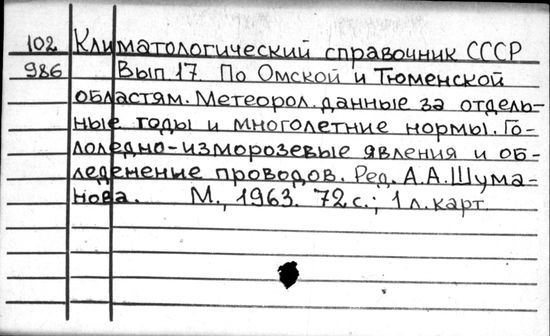 102 Климатологический справочник СССР
986 Вып. 17. По Омской и Тюменской
областям. Метеорол. данные за отдель-
ные годы и многолетние нормы. Го-
лоледно-изморозевые явления и об-
леденение проводов. Ред. А.А.Шума-
нова. М., 1963. 72 с.; 1 л. карт.